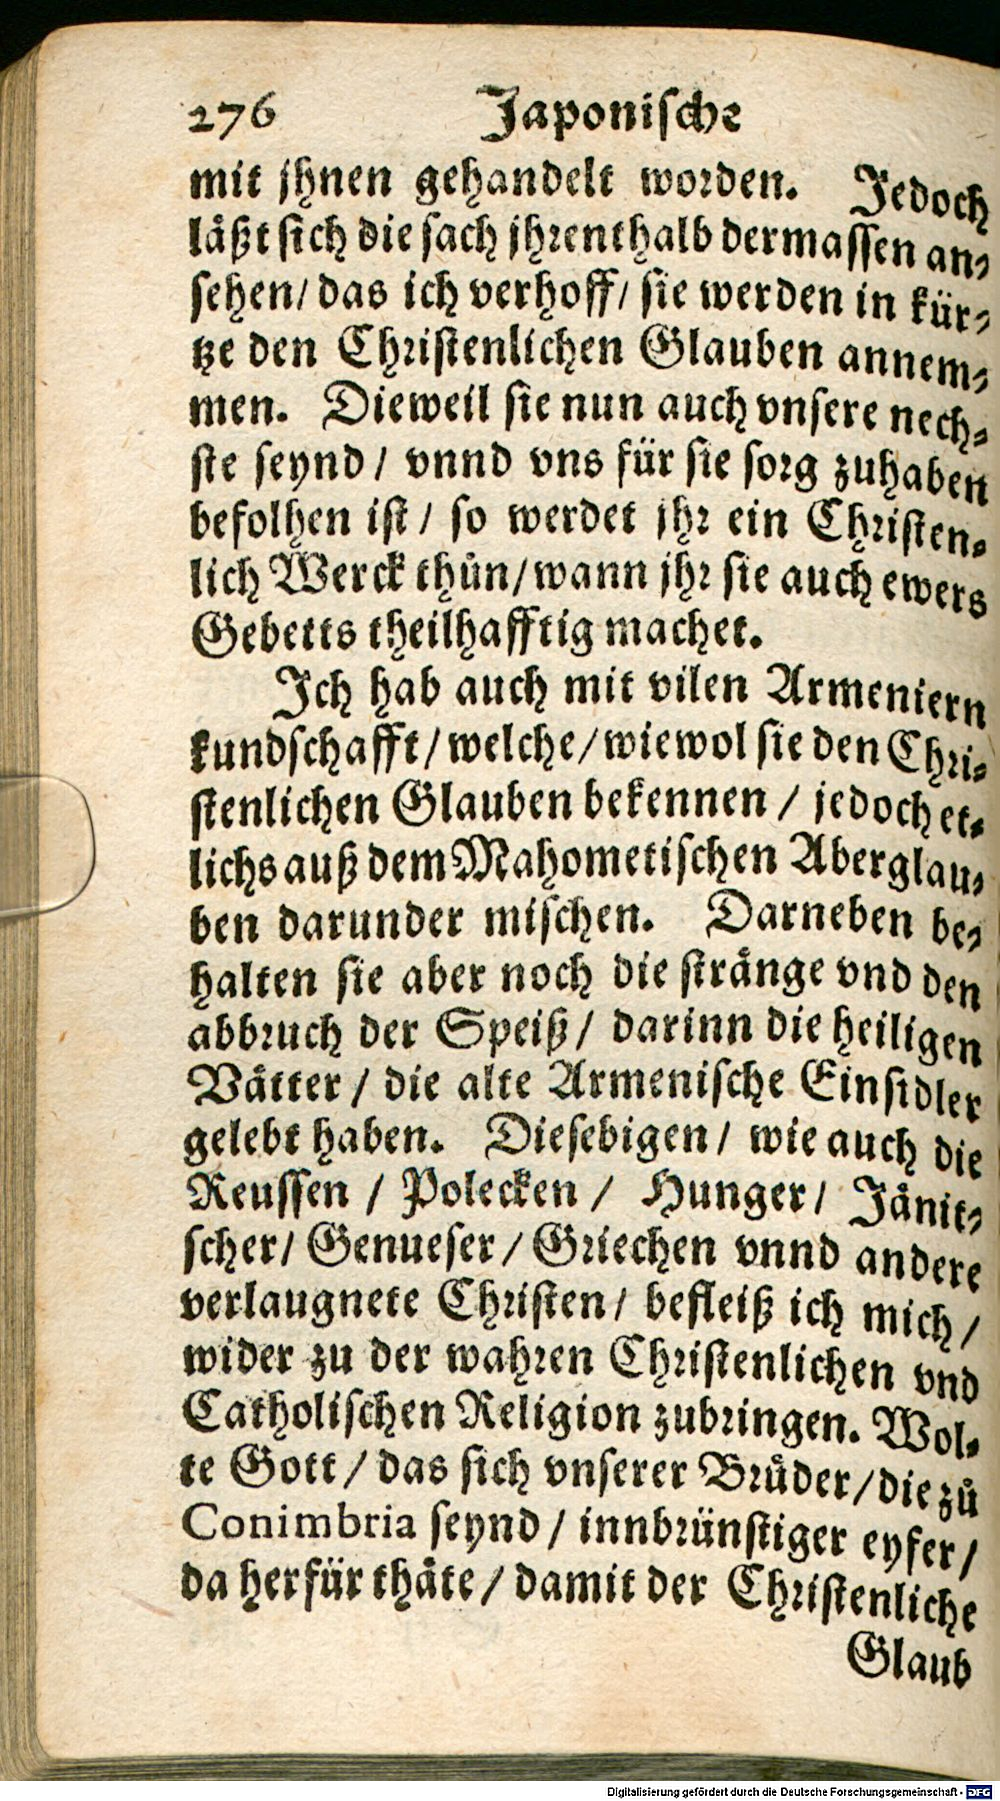 276 Japonische
mit jhnen gehandelt worden. Jedoch
läßt sich die sach jhrenthalb dermassen an-
sehen/ das ich verhoff/ sie werden in kür-
tze den Christenlichen Glauben annem-
men. Dieweil sie nun auch vnsere nech-
ste seynd / vnnd vns für sie sorg zuhaben
befolhen ist / so werdet jhr ein Christen-
lich Werck thůn/ wann jhr sie auch ewers
Gebetts theilhafftig machet.
Ich hab auch mit vilen Armeniern
kundschafft/ welche/ wiewol sie den Chri-
stenlichen Glauben bekennen / jedoch et-
lichs auß dem Mahometischen Aberglau-
ben darunder mischen. Darneben be-
halten sie aber noch die stränge vnd den
abbruch der Speiß/ darinn die heiligen
Vätter / die alte Armenische Einsidler
gelebt haben. Diesebigen/ wie auch die
Reussen / Polecken / Hunger/ Jänit-
scher/ Genueser / Griechen vnnd andere
verlaugnete Christen/ befleiß ich mich /
wider zu der wahren Christenlichen vnd
Catholischen Religion zubringen. Wol-
te Gott / das sich vnserer Brüder/ die zů
Conimbria seynd / innbrünstiger eyfer /
da herfür thäte / damit der Christenliche
Glaub
Digitalisierung gefördert durch die Deutsche Forschungsgemeinschaft - DFG